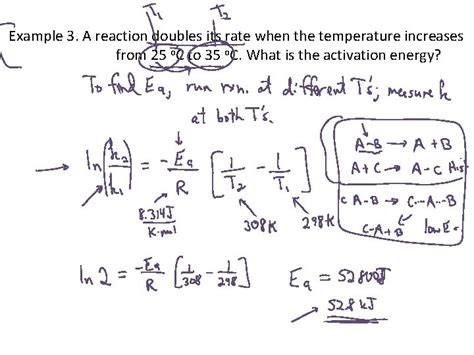 T₁ T₂
Example 3. A reaction doubles its rate when the temperature increases
from 25 ºC to 35 ºC. What is the activation energy?
To find Ea, run rxn. at different T's; measure k
at both T's.
→ ln(k₂/k₁) = -Ea/R [1/T₂ - 1/T₁]
8.314J/K·mol 308K 298K
A-B → A + B
A + C → A-C
C A-B → C--A--B
C-A + B low E
ln 2 = -Ea/R [1/308 - 1/298] Ea = 52800J
→ 52.8 kJ